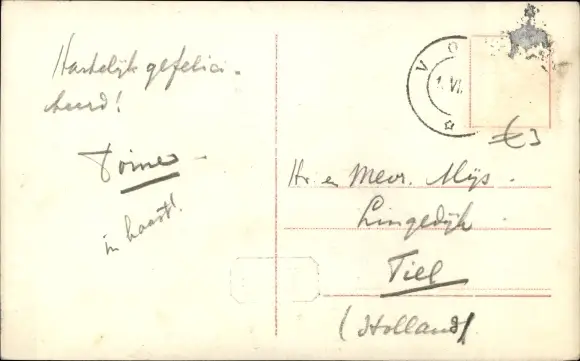 Hartelijk gefelici-
teerd!
Toine
in haast!
V O
1. VI.
€ 3
Hr. en Mevr. Mijs.
Lingedijk
Tiel
(Holland)